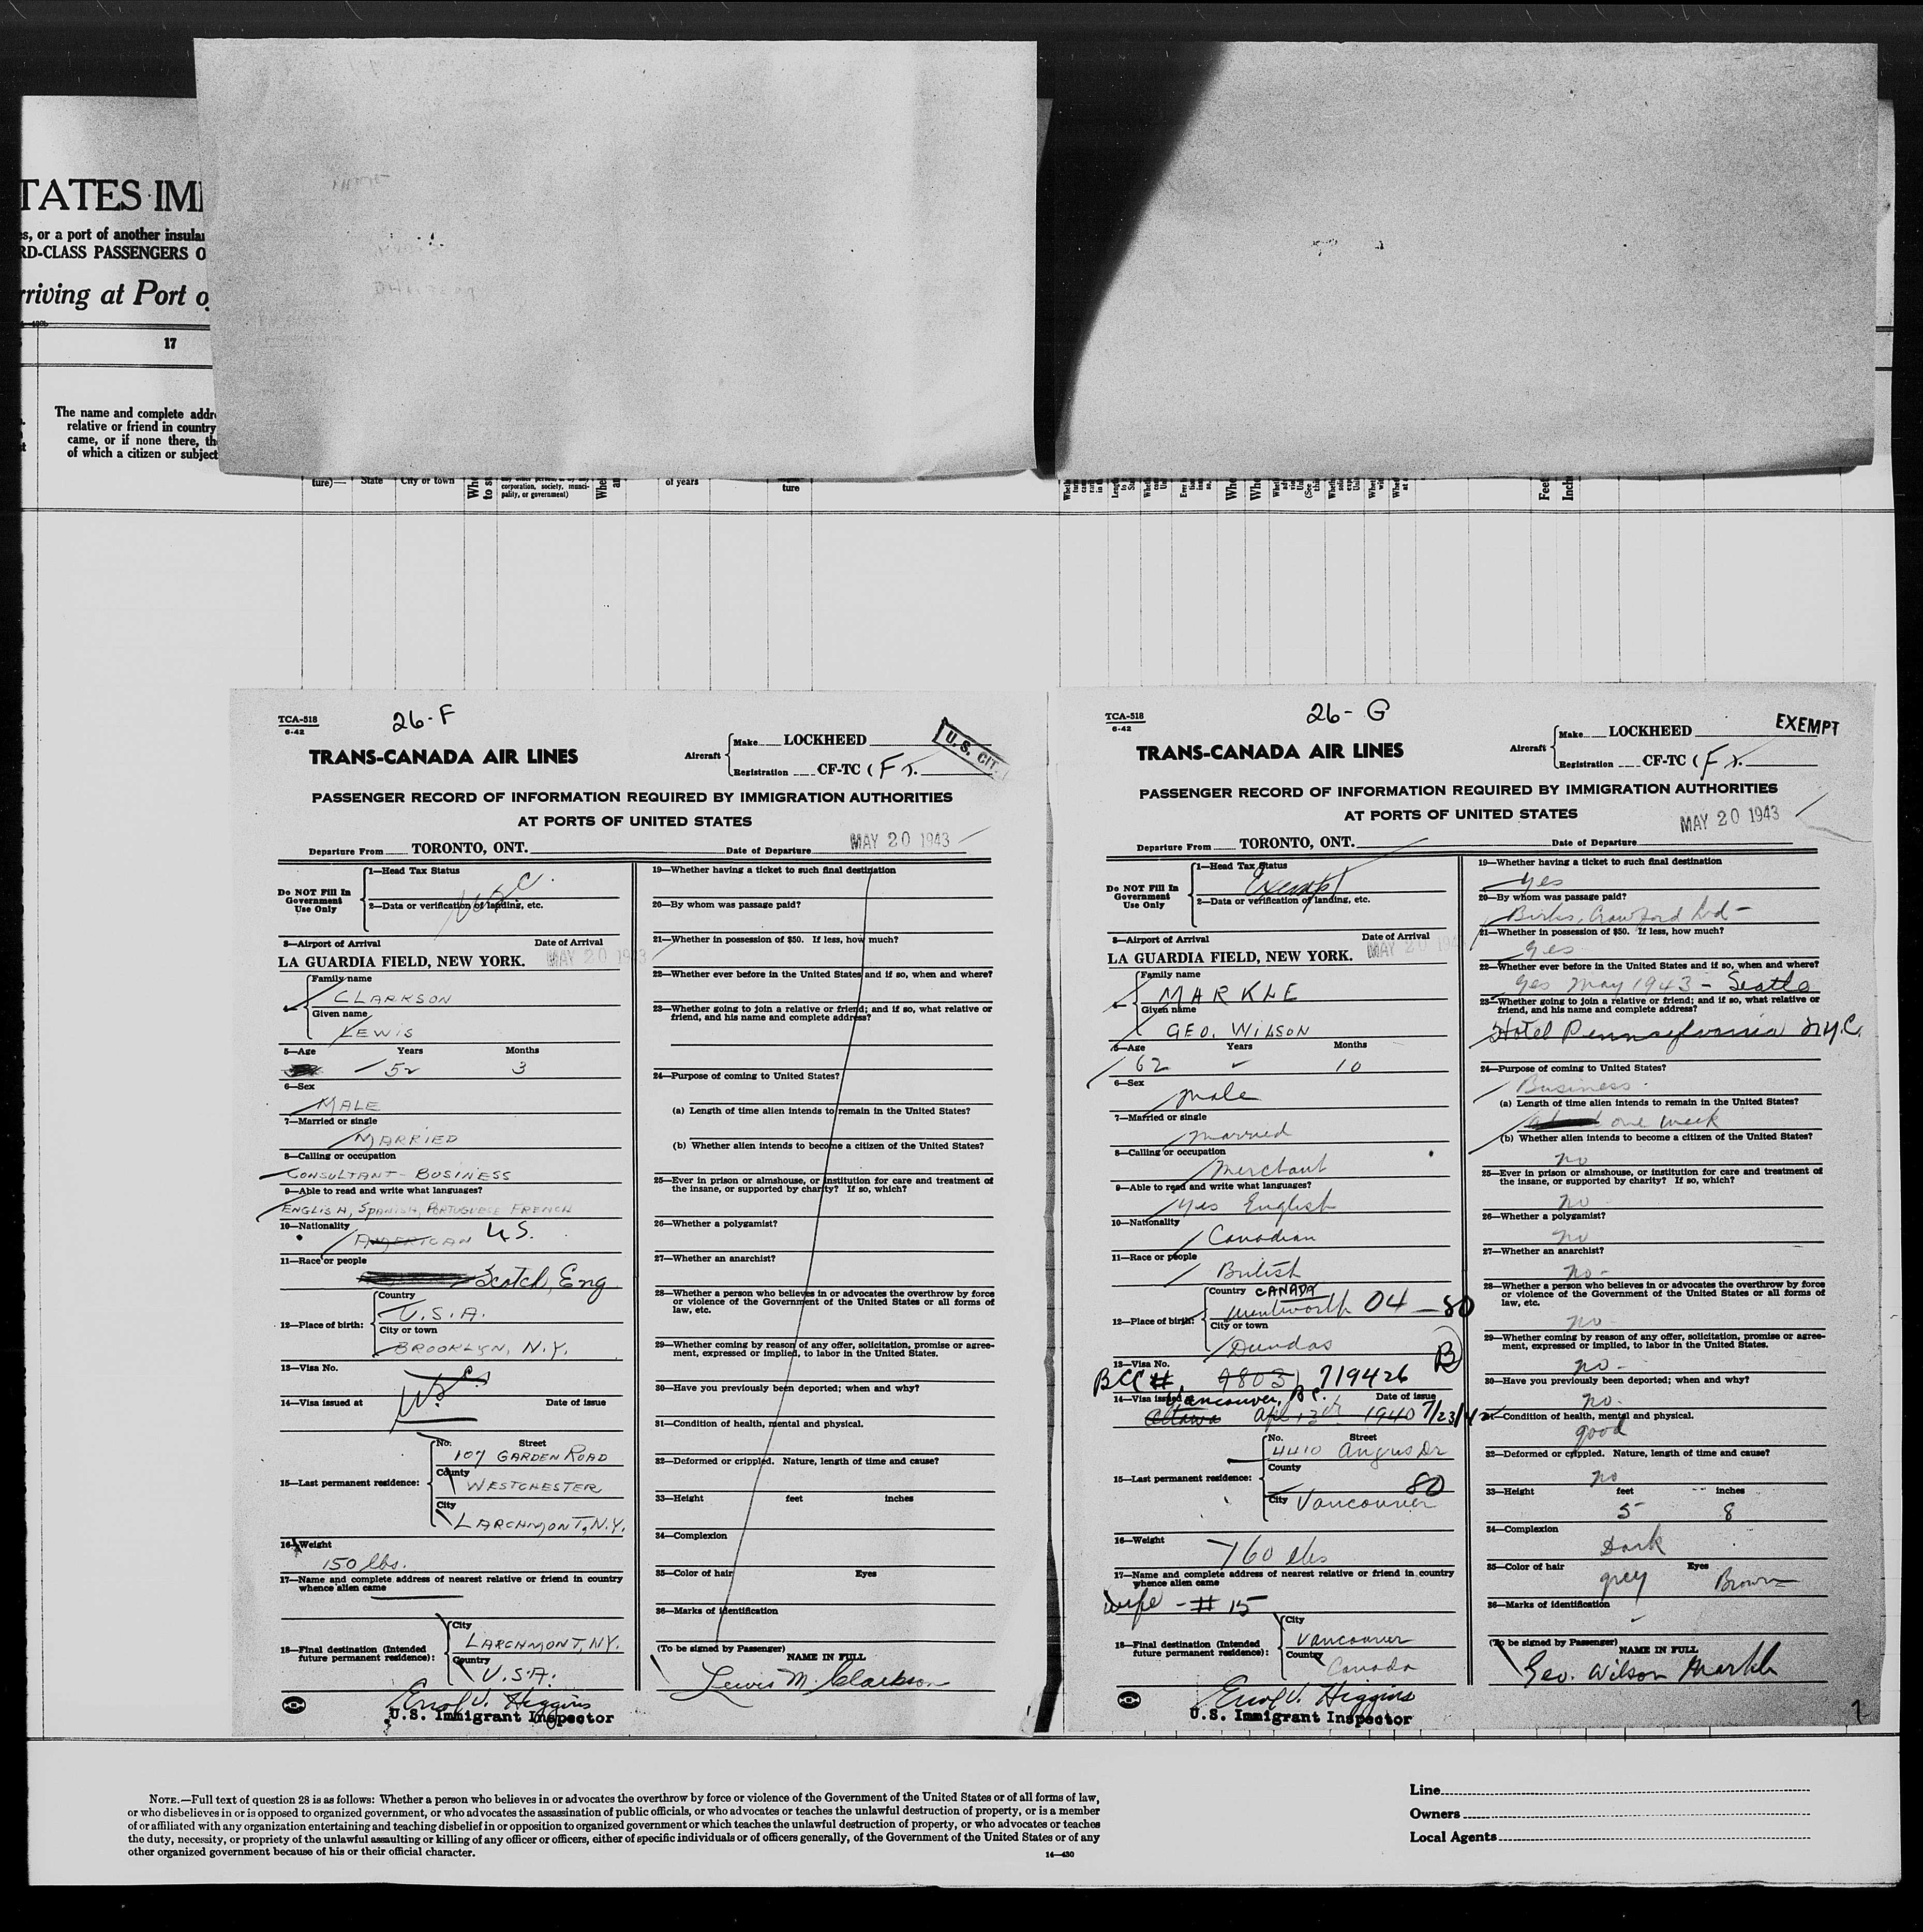 TATES IMI
s, or a port of another insular
RD-CLASS PASSENGERS O
rriving at Port o
17
The name and complete addre
relative or friend in country
came, or if none there, the
of which a citizen or subject
ture)—
State
City or town
corporation, society, munici-
pality, or government)
of years
ture
Feet
Inch
TCA-518
6-42
26-F
TRANS-CANADA AIR LINES
Aircraft
Make LOCKHEED
Registration CF-TC (F
U. S. CIT.
PASSENGER RECORD OF INFORMATION REQUIRED BY IMMIGRATION AUTHORITIES
AT PORTS OF UNITED STATES
Departure From TORONTO, ONT. Date of Departure MAY 20 1943
Do NOT Fill In
Government
Use Only
1—Head Tax Status
2—Data or verification of landing, etc.
3—Airport of Arrival Date of Arrival
LA GUARDIA FIELD, NEW YORK. MAY 20 1943
Family name
CLARKSON
Given name
LEWIS
5—Age Years Months
52 3
6—Sex
MALE
7—Married or single
MARRIED
8—Calling or occupation
CONSULTANT - BUSINESS
9—Able to read and write what languages?
ENGLISH, SPANISH, PORTUGUESE FRENCH
10—Nationality
AMERICAN U.S.
11—Race or people
Scotch, Eng
12—Place of birth:
Country
U.S.A.
City or town
BROOKLYN, N.Y.
13—Visa No.
14—Visa issued at Date of issue
15—Last permanent residence:
No. Street
107 GARDEN ROAD
County
WESTCHESTER
City
LARCHMONT, N.Y.
16—Weight
150 lbs.
17—Name and complete address of nearest relative or friend in country
whence alien came
18—Final destination (Intended
future permanent residence):
City
LARCHMONT, N.Y.
Country
U.S.A.
Errol V. Higgins
U.S. Immigrant Inspector
19—Whether having a ticket to such final destination
20—By whom was passage paid?
21—Whether in possession of $50. If less, how much?
22—Whether ever before in the United States and if so, when and where?
23—Whether going to join a relative or friend; and if so, what relative or
friend, and his name and complete address?
24—Purpose of coming to United States?
(a) Length of time alien intends to remain in the United States?
(b) Whether alien intends to become a citizen of the United States?
25—Ever in prison or almshouse, or institution for care and treatment of
the insane, or supported by charity? If so, which?
26—Whether a polygamist?
27—Whether an anarchist?
28—Whether a person who believes in or advocates the overthrow by force
or violence of the Government of the United States or all forms of
law, etc.
29—Whether coming by reason of any offer, solicitation, promise or agree-
ment, expressed or implied, to labor in the United States.
30—Have you previously been deported; when and why?
31—Condition of health, mental and physical.
32—Deformed or crippled. Nature, length of time and cause?
33—Height feet inches
34—Complexion
35—Color of hair Eyes
36—Marks of identification
(To be signed by Passenger)
NAME IN FULL
Lewis M. Clarkson
TCA-518
6-42
26-G
EXEMPT
TRANS-CANADA AIR LINES
Aircraft
Make LOCKHEED
Registration CF-TC (F
PASSENGER RECORD OF INFORMATION REQUIRED BY IMMIGRATION AUTHORITIES
AT PORTS OF UNITED STATES
MAY 20 1943
Departure From TORONTO, ONT. Date of Departure
Do NOT Fill In
Government
Use Only
1—Head Tax Status
Exempt
2—Data or verification of landing, etc.
3—Airport of Arrival Date of Arrival
LA GUARDIA FIELD, NEW YORK. MAY 20 194
Family name
MARKLE
Given name
GEO. WILSON
5—Age Years Months
62 10
6—Sex
male
7—Married or single
married
8—Calling or occupation
Merchant
9—Able to read and write what languages?
Yes English
10—Nationality
Canadian
11—Race or people
British
12—Place of birth:
Country CANADA
Wentworth 04-80
City or town
Dundas
13—Visa No. B
BCC # 9803 719426
14—Visa issued at Vancouver, B.C. Date of issue
Ottawa 1940 7/23/42
15—Last permanent residence:
No. Street
4410 Angus Dr
County
80
City Vancouver
16—Weight
160 lbs
17—Name and complete address of nearest relative or friend in country
whence alien came
Wife - # 15
18—Final destination (Intended
future permanent residence):
City
Vancouver
Country
Canada
Errol V. Higgins
U.S. Immigrant Inspector
19—Whether having a ticket to such final destination
yes
20—By whom was passage paid?
Birks, Crawford Ltd-
21—Whether in possession of $50. If less, how much?
yes
22—Whether ever before in the United States and if so, when and where?
yes May 1943 - Seattle
23—Whether going to join a relative or friend; and if so, what relative or
friend, and his name and complete address?
Hotel Pennsylvania N.Y.C.
24—Purpose of coming to United States?
Business
(a) Length of time alien intends to remain in the United States?
one week
(b) Whether alien intends to become a citizen of the United States?
no
25—Ever in prison or almshouse, or institution for care and treatment of
the insane, or supported by charity? If so, which?
no
26—Whether a polygamist?
no
27—Whether an anarchist?
no-
28—Whether a person who believes in or advocates the overthrow by force
or violence of the Government of the United States or all forms of
law, etc.
no-
29—Whether coming by reason of any offer, solicitation, promise or agree-
ment, expressed or implied, to labor in the United States.
no-
30—Have you previously been deported; when and why?
no.
31—Condition of health, mental and physical.
good
32—Deformed or crippled. Nature, length of time and cause?
no
33—Height feet inches
5 8
34—Complexion
Dark
35—Color of hair Eyes
grey Brown
36—Marks of identification
(To be signed by Passenger)
NAME IN FULL
Geo. Wilson Markle
NOTE.—Full text of question 28 is as follows: Whether a person who believes in or advocates the overthrow by force or violence of the Government of the United States or of all forms of law,
or who disbelieves in or is opposed to organized government, or who advocates the assassination of public officials, or who advocates or teaches the unlawful destruction of property, or is a member
of or affiliated with any organization entertaining and teaching disbelief in or opposition to organized government or which teaches the unlawful destruction of property, or who advocates or teaches
the duty, necessity, or propriety of the unlawful assaulting or killing of any officer or officers, either of specific individuals or of officers generally, of the Government of the United States or of any
other organized government because of his or their official character.
14—430
Line
Owners
Local Agents